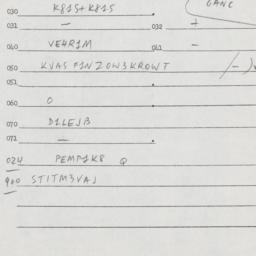 GANC
030 K815+K815
031 — 032 +
040 VE4R1M 041 —
050 KVAS F1NZOW3KROWT /—)
052
060 0
070 D1LEJB
072 —
024 PEMP1K8 Q
900 STITM3VAJ